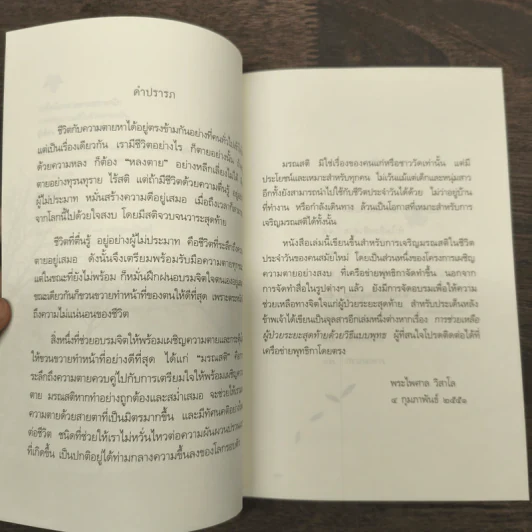 คำปรารภ
ชีวิตกับความตายหาได้อยู่ตรงข้ามกันอย่างที่คน
แต่เป็นเรื่องเดียวกัน เรามีชีวิตอย่างไร ก็ตายอย่างนั้น
ด้วยความหลง ก็ต้อง “หลงตาย” อย่างหลีกเลี่ยงไม่ได้
ตายอย่างทุรนทุราย ไร้สติ แต่ถ้ามีชีวิตด้วยความตื่นรู้
ผู้ไม่ประมาท หมั่นสร้างความดีอยู่เสมอ เมื่อถึงเวลา
จากโลกนี้ไปด้วยใจสงบ โดยมีสติจวบจนวาระสุดท้าย
ชีวิตที่ตื่นรู้ อย่างผู้ไม่ประมาท คือชีวิตที่ระลึกถึง
ตายอยู่เสมอ ดังนั้นจึงเตรียมพร้อมรับมือความตาย
แต่ในขณะที่ยังไม่พร้อม ก็หมั่นฝึกฝนอบรมจิตใจตนเอง
ขณะเดียวกันก็ขวนขวายทำหน้าที่ของตนให้ดีที่สุด เพราะตระหนัก
ถึงความไม่แน่นอนของชีวิต
สิ่งหนึ่งที่ช่วยอบรมจิตใจให้พร้อมเผชิญความตายและกระตุ้น
ให้ขวนขวายทำหน้าที่อย่างดีที่สุด ได้แก่ “มรณสติ” คือ
ระลึกถึงความตายควบคู่ไปกับการเตรียมใจให้พร้อมเผชิญความ
ตาย มรณสติหากทำอย่างถูกต้องและสม่ำเสมอ จะช่วยให้
ความตายด้วยสายตาที่เป็นมิตรมากขึ้น และมีทัศนคติ
ต่อชีวิต ชนิดที่ช่วยให้เราไม่หวั่นไหวต่อความผันผวนปรวนแปร
ที่เกิดขึ้น เป็นปกติอยู่ได้ท่ามกลางความขึ้นลงของโลกรอบตัว
มรณสติ มิใช่เรื่องของคนแก่หรือชาววัดเท่านั้น แต่มี
ประโยชน์และเหมาะสำหรับทุกคน ไม่เว้นแม้แต่เด็กและหนุ่มสาว
อีกทั้งยังสามารถนำไปใช้กับชีวิตประจำวันได้ด้วย ไม่ว่าอยู่บ้าน
ที่ทำงาน หรือกำลังเดินทาง ล้วนเป็นโอกาสที่เหมาะสำหรับการ
เจริญมรณสติได้ทั้งนั้น
หนังสือเล่มนี้เขียนขึ้นสำหรับการเจริญมรณสติในชีวิต
ประจำวันของคนสมัยใหม่ โดยเป็นส่วนหนึ่งของโครงการเผชิญ
ความตายอย่างสงบ ที่เครือข่ายพุทธิกาจัดทำขึ้น นอกจาก
การจัดทำสื่อในรูปต่างๆ แล้ว ยังมีการจัดอบรมเพื่อให้ความ
ช่วยเหลือทางจิตใจแก่ผู้ป่วยระยะสุดท้าย สำหรับประเด็นหลัง
ข้าพเจ้าได้เขียนเป็นจุลสารอีกเล่มหนึ่งต่างหากเรื่อง การช่วยเหลือ
ผู้ป่วยระยะสุดท้ายด้วยวิธีแบบพุทธ ผู้ที่สนใจโปรดติดต่อได้ที่
เครือข่ายพุทธิกาโดยตรง
พระไพศาล วิสาโล
๔ กุมภาพันธ์ ๒๕๕๑